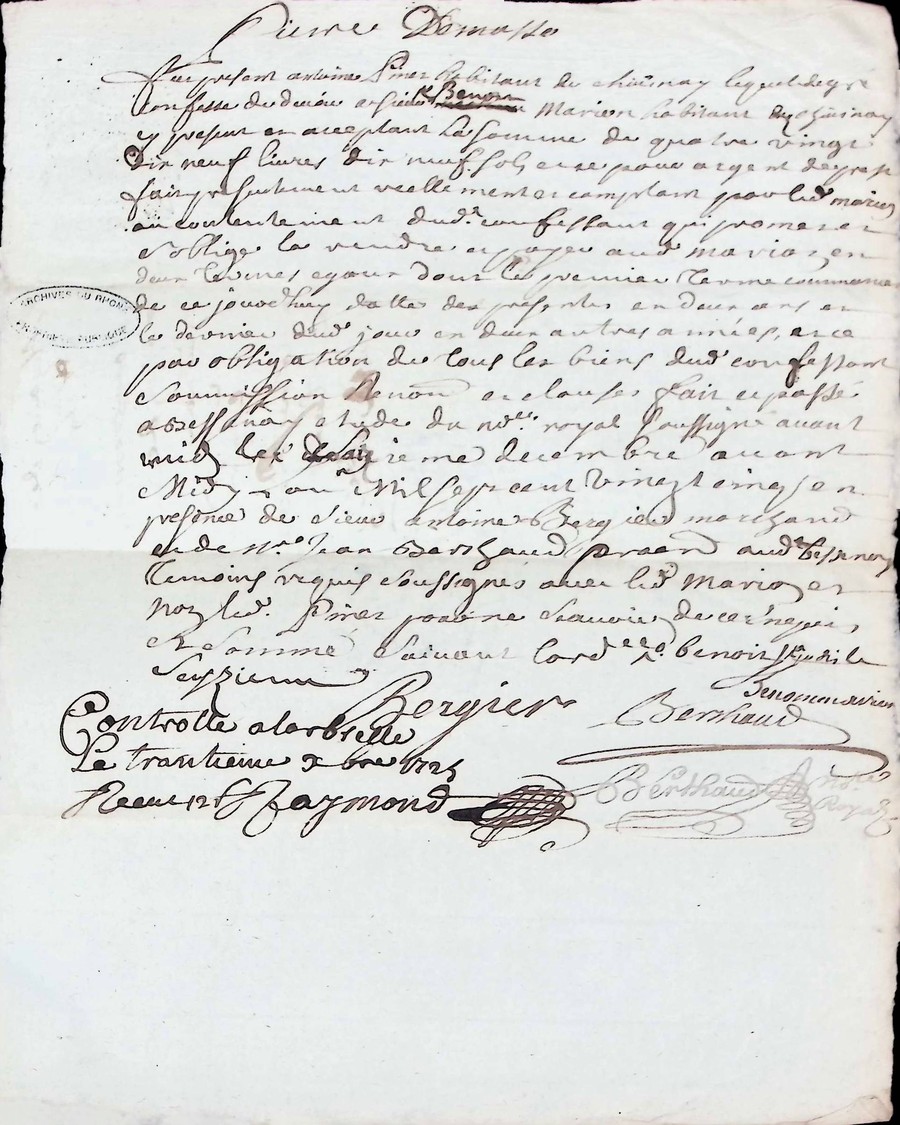 Pierre Demasse
Fut present antoine Pinet habitant de lequel de gré
confesse debvoir a sieur Benoit Marion habitant
cy present et acceptant la somme de quatre vingt
dix neuf livres dix neuf sols et ce pour argent de prest
fait presentement reellement et comptant par led. marion
au contentement dud. confessant qui promet et
s'oblige la rendre et payer aud. marion en
deux termes egaux dont le premier terme commance
ARCHIVES DU RHONE
de ce jourdhuy datte des presentes en deux ans et
le dernier dud. jour en deux autres années, et ce
par obligation de tous les biens dud. confessant
soumission renon et clauses fait et passé
a Bessenay etude du no.re royal soussigné avant
midy le decembre avant
Midy an Mil sept cent vingt cinq en
presence de sieur antoine Bergier marchand
et de Me Jean Berthaud aud. bessenay
temoins requis soussignés avec led. Marion et
non led. Pinet pour ne scavoir de ce enquis
et sommé suivant lord.ce benoit
Benoit marion
Bergier
Berthaud
Controllé a larbrelle
Le trantieme xbre 1725
Receu 12 s Raymond
Berthaud no.re
Royal